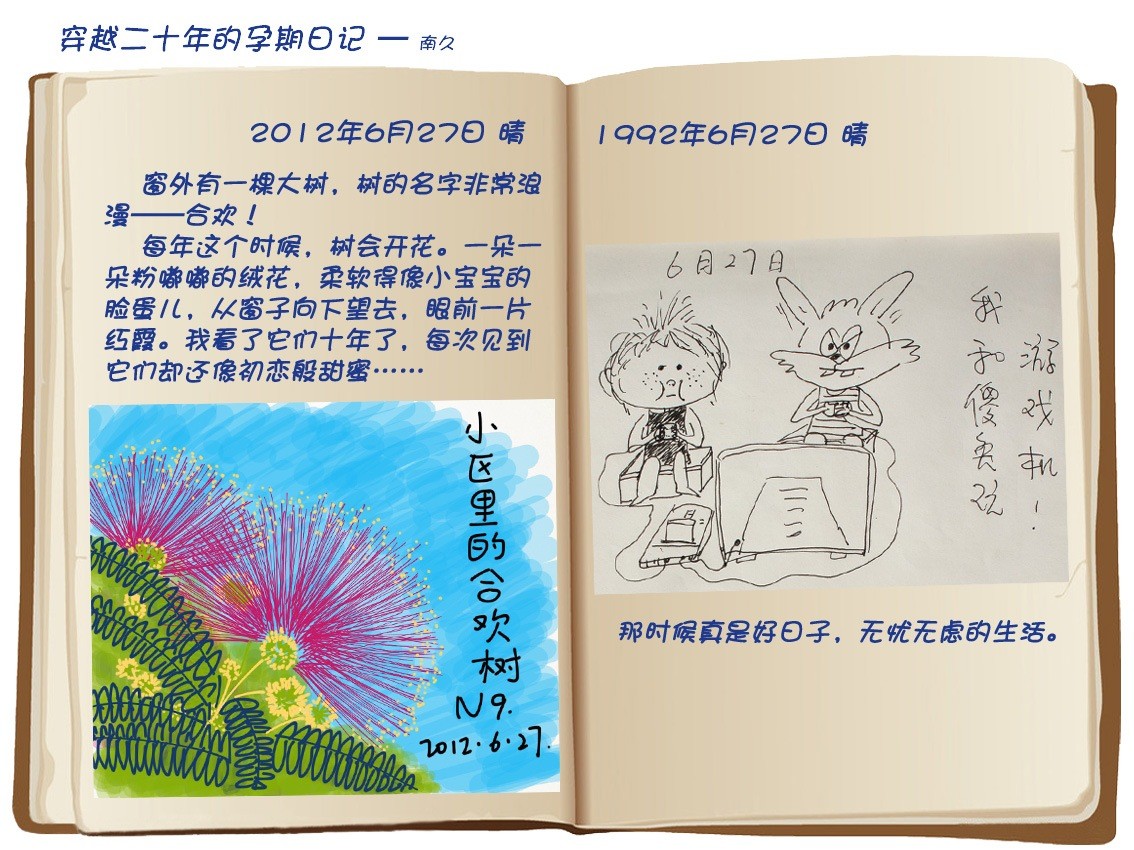 穿越二十年的孕期日记 — 南久
2012年6月27日 晴
窗外有一棵大树，树的名字非常浪
漫——合欢！
每年这个时候，树会开花。一朵一
朵粉嘟嘟的绒花，柔软得像小宝宝的
脸蛋儿，从窗子向下望去，眼前一片
红霞。我看了它们十年了，每次见到
它们却还像初恋般甜蜜……
小区里的合欢树
N9.
2012.6.27.
1992年6月27日 晴
6月27日
我和傻兔玩
游戏机！
那时候真是好日子，无忧无虑的生活。